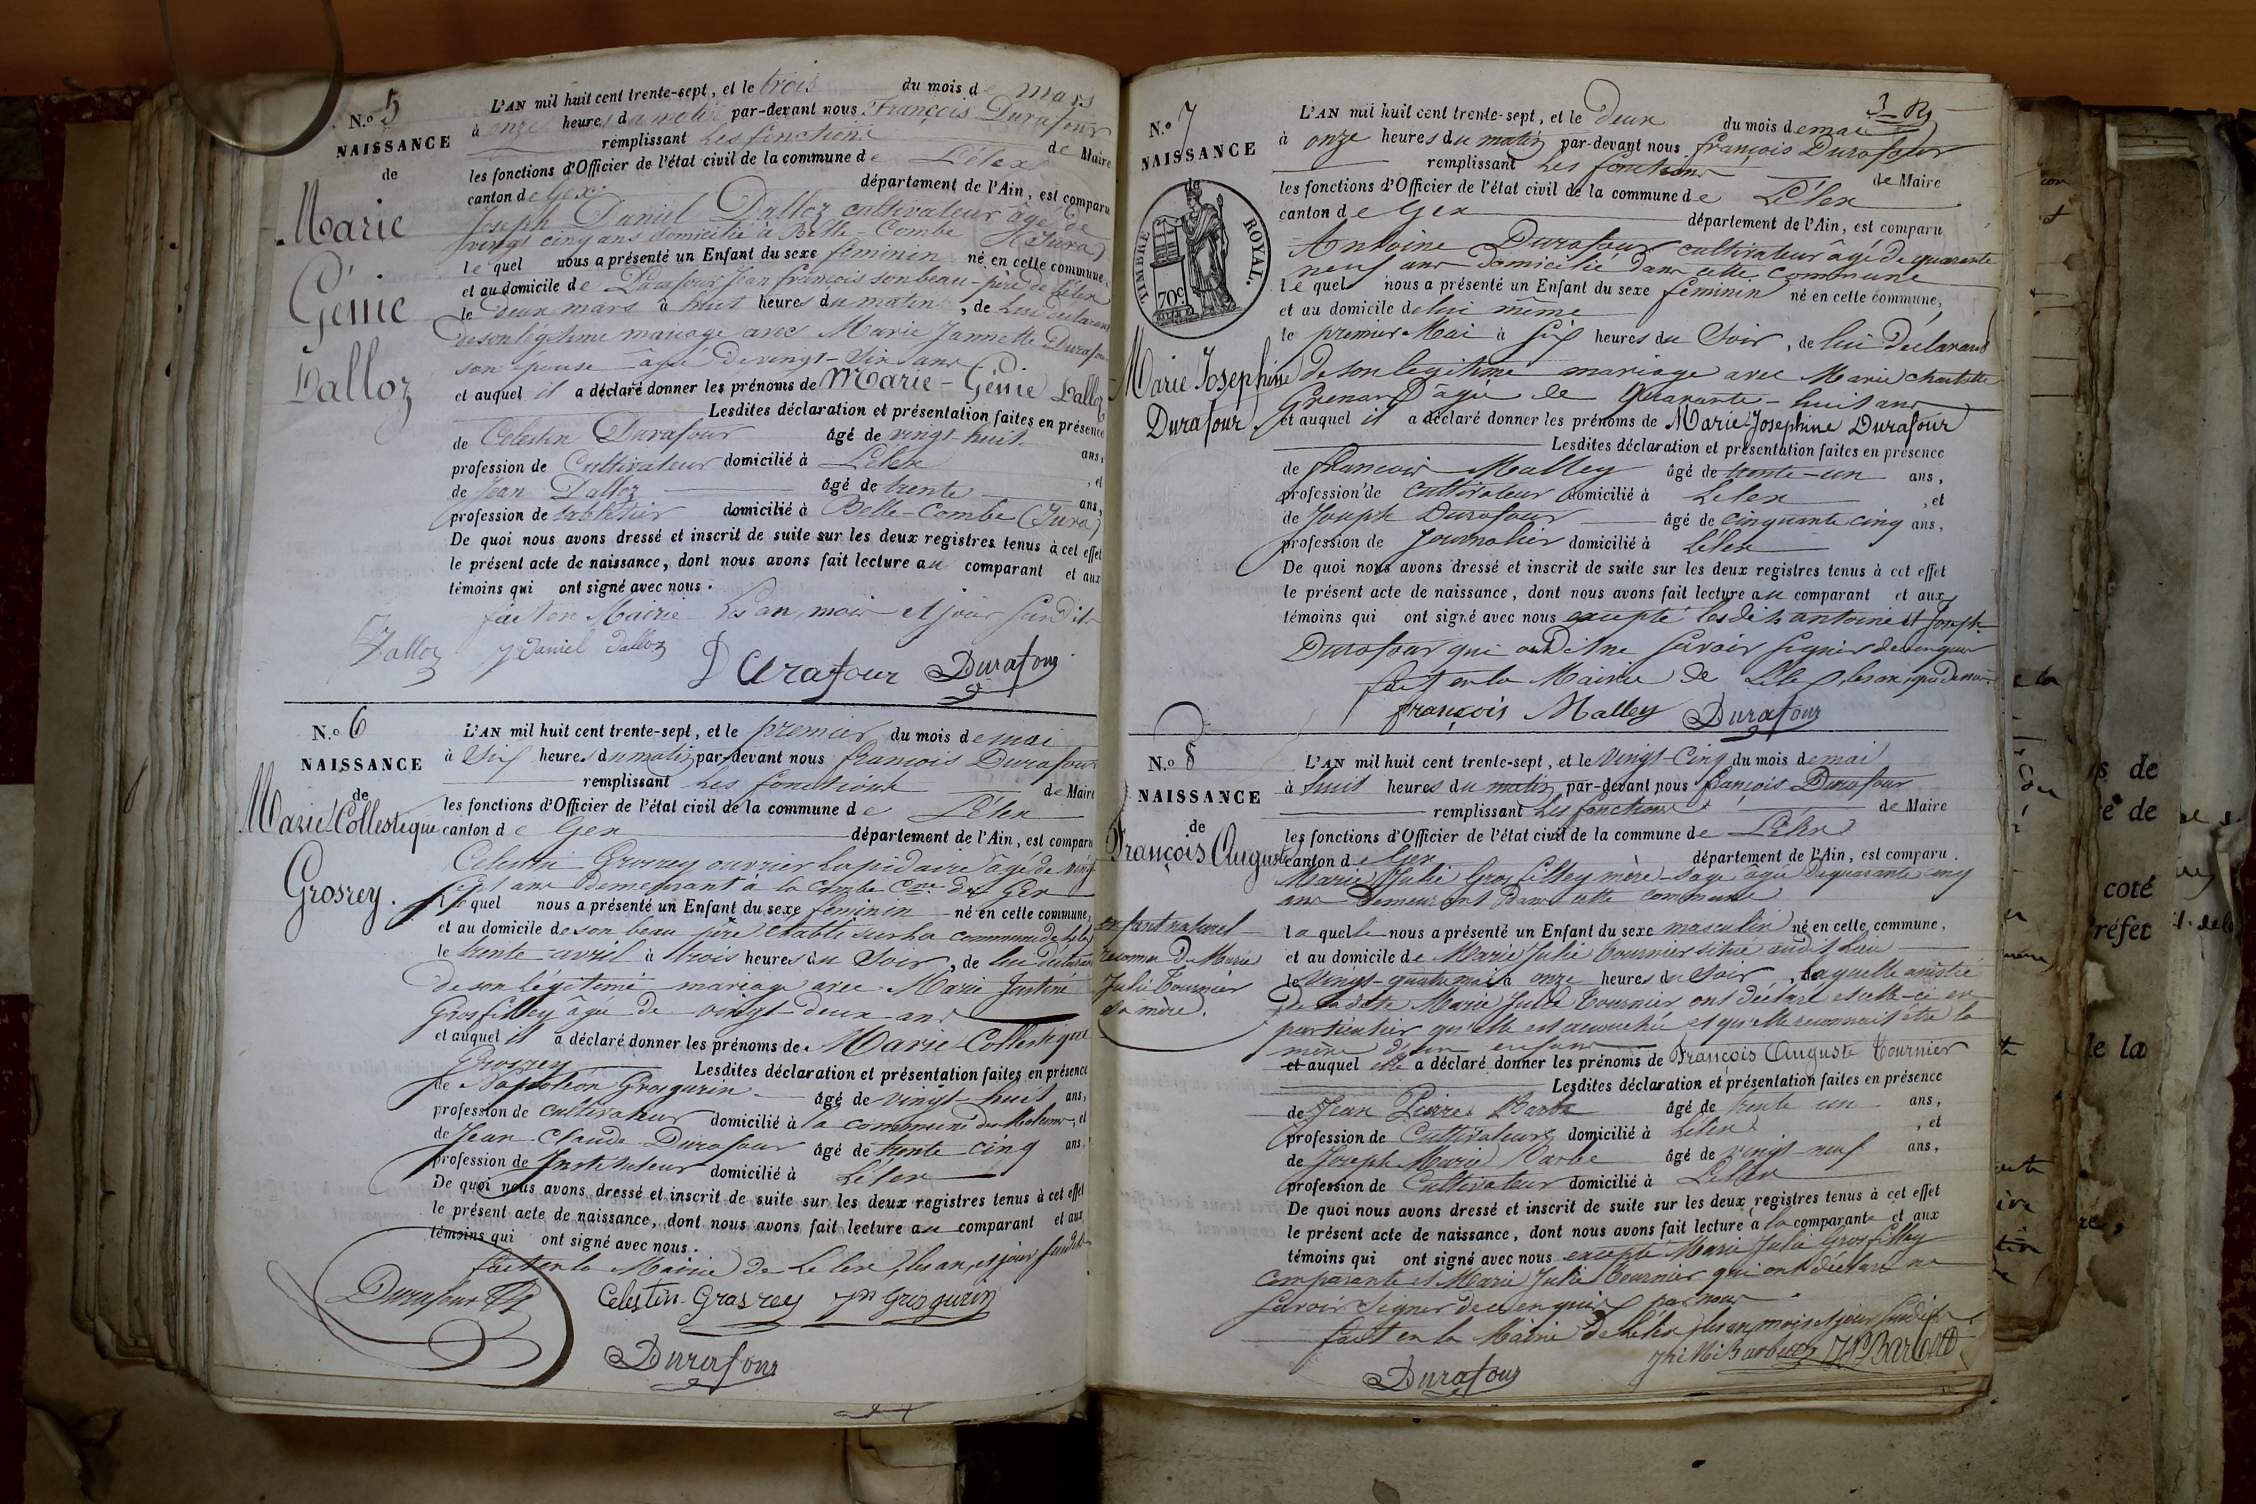 N.o 5
NAISSANCE
de
Marie
Génie
Dalloz
L'AN mil huit cent trente-sept, et le trois du mois de mars
à onze heures du matin par-devant nous François Durafour
remplissant les fonctions de Maire
les fonctions d'Officier de l'état civil de la commune de Lélex
canton de Gex département de l'Ain, est comparu
Joseph Daniel Dalloz cultivateur âgé de
vingt cinq ans domicilié à Belle-Combe (Jura)
lequel nous a présenté un Enfant du sexe féminin né en cette commune,
et au domicile de Durafour Jean françois son beau-père de Lélex
le deux mars à huit heures du matin, de lui déclarant
de son légitime mariage avec Marie Jannette Durafour
son épouse âgé de vingt-six ans
et auquel il a déclaré donner les prénoms de Marie-Génie Dalloz
Lesdites déclaration et présentation faites en présence
de Celestin Durafour âgé de vingt-huit ans,
profession de Cultivateur domicilié à Lélex , et
de Jean Dalloz âgé de trente ans,
profession de tabletier domicilié à Belle-Combe (Jura)
De quoi nous avons dressé et inscrit de suite sur les deux registres tenus à cet effet
le présent acte de naissance, dont nous avons fait lecture au comparant et aux
témoins qui ont signé avec nous.
fait en Mairie les an, mois et jour susdits
Dalloz Jh Daniel Dalloz Durafour Durafour
N.o 6
NAISSANCE
de
Marie Collestique
Grosrey.
L'AN mil huit cent trente-sept, et le premier du mois de mai
à six heures du matin par-devant nous françois Durafour
remplissant les fonctions de Maire
les fonctions d'Officier de l'état civil de la commune de Lélex
canton de Gex département de l'Ain, est comparu
Celestin Grosrey ouvrier Lapidaire âgé de vingt
sept ans demeurant à la combe Cne de Gex
lequel nous a présenté un Enfant du sexe féminin né en cette commune,
et au domicile de son beau père établi sur la commune de Lélex
le trente avril à trois heures du Soir, de lui déclarant
de son légitime mariage avec Marie Justine
Grosfilley âgée de vingt-deux ans
et auquel il a déclaré donner les prénoms de Marie Collestique
Grosrey Lesdites déclaration et présentation faites en présence
de Napoléon Grosgurin âgé de vingt-huit ans,
profession de cultivateur domicilié à la commune des Molunes, et
de Jean Claude Durafour âgé de trente cinq ans,
profession de Instituteur domicilié à Lélex
De quoi nous avons dressé et inscrit de suite sur les deux registres tenus à cet effet
le présent acte de naissance, dont nous avons fait lecture au comparant et aux
témoins qui ont signé avec nous.
fait en la Mairie de Lélex, les an, et jour susdits
Durafour Celestin Grosrey Jn Grosgurin
Durafour
N.o 7
NAISSANCE
de
TIMBRE ROYAL.
70c
Marie Josephine
Durafour
L'AN mil huit cent trente-sept, et le Deux du mois de mai
à onze heures du matin par-devant nous françois Durafour
remplissant les fonctions de Maire
les fonctions d'Officier de l'état civil de la commune de Lélex
canton de Gex département de l'Ain, est comparu
Antoine Durafour cultivateur âgé de quarante
neuf ans domicilié dans cette commune
lequel nous a présenté un Enfant du sexe féminin né en cette commune,
et au domicile de lui même
le premier Mai à six heures du Soir, de lui déclarant
de son légitime mariage avec Marie charlotte
Grenard âgée de quarante-huit ans
et auquel il a déclaré donner les prénoms de Marie Josephine Durafour
Lesdites déclaration et présentation faites en présence
de françois Malley âgé de trente-un ans,
profession de cultivateur domicilié à Lélex , et
de Joseph Durafour âgé de cinquante cinq ans,
profession de Journalier domicilié à Lélex
De quoi nous avons dressé et inscrit de suite sur les deux registres tenus à cet effet
le présent acte de naissance, dont nous avons fait lecture au comparant et aux
témoins qui ont signé avec nous excepté lesdits antoine et Joseph
Durafour qui ont dit ne savoir signer de ce enquis
fait en la Mairie de Lélex, les an, que devant
françois Malley Durafour
N.o 8
NAISSANCE
de
François Auguste
enfant naturel
reconnu de Marie
Julie Tournier
sa mère.
L'AN mil huit cent trente-sept, et le vingt-cinq du mois de mai
à huit heures du matin par-devant nous françois Durafour
remplissant les fonctions de Maire
les fonctions d'Officier de l'état civil de la commune de Lélex
canton de Gex département de l'Ain, est comparu.
Marie Julie Gros filley mère-sage âgée de quarante cinq
ans demeurant dans cette commune
laquelle nous a présenté un Enfant du sexe masculin né en cette commune,
et au domicile de Marie Julie Tournier situé audit lieu
le vingt-quatre mai à onze heures du soir, laquelle assistée
de ladite Marie Julie Tournier ont déclaré et celle-ci en
particulier qu'elle est accouchée et qu'elle reconnait être la
mère d'un enfant
et auquel elle a déclaré donner les prénoms de François Auguste Tournier
Lesdites déclaration et présentation faites en présence
de Jean Pierre Barbe âgé de trente un ans,
profession de Cultivateur domicilié à Lélex , et
de Joseph Marie Barbe âgé de vingt-neuf ans,
profession de Cultivateur domicilié à Lélex
De quoi nous avons dressé et inscrit de suite sur les deux registres tenus à cet effet
le présent acte de naissance, dont nous avons fait lecture à la comparante et aux
témoins qui ont signé avec nous excepté Marie Julie Grosfilley
comparante et Marie Julie Tournier qui ont déclaré ne
savoir signer de ce enquis par nous
fait en la Mairie de Lélex les an, mois et jour susdits
Durafour
de
de
coté
réfet
de la